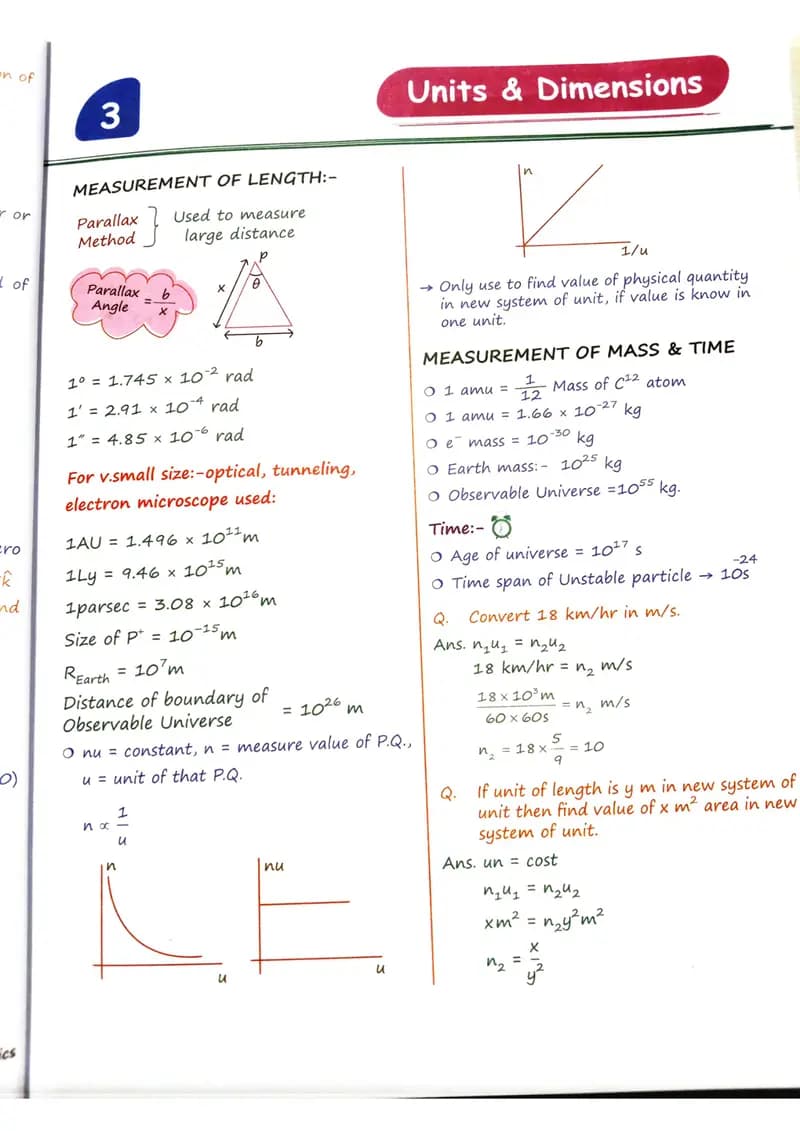 3
Units & Dimensions
MEASUREMENT OF LENGTH:-
Parallax Method } Used to measure
large distance
Parallax Angle = b/x
P
θ
x
b
1° = 1.745 × 10⁻² rad
1′ = 2.91 × 10⁻⁴ rad
1″ = 4.85 × 10⁻⁶ rad
For v.small size:-optical, tunneling,
electron microscope used:
1AU = 1.496 × 10¹¹m
1Ly = 9.46 × 10¹⁵m
1parsec = 3.08 × 10¹⁶m
Size of P⁺ = 10⁻¹⁵m
R_Earth = 10⁷m
Distance of boundary of
Observable Universe = 10²⁶ m
○ nu = constant, n = measure value of P.Q.,
u = unit of that P.Q.
n ∝ 1/u
n
u
nu
u
n
1/u
→ Only use to find value of physical quantity
in new system of unit, if value is know in
one unit.
MEASUREMENT OF MASS & TIME
○ 1 amu = 1/12 Mass of C¹² atom
○ 1 amu = 1.66 × 10⁻²⁷ kg
○ e⁻ mass = 10⁻³⁰ kg
○ Earth mass:- 10²⁵ kg
○ Observable Universe =10⁵⁵ kg.
Time:-
○ Age of universe = 10¹⁷ s
○ Time span of Unstable particle → 10s⁻²⁴
Q. Convert 18 km/hr in m/s.
Ans. n₁u₁ = n₂u₂
18 km/hr = n₂ m/s
18 × 10³m / 60 × 60s = n₂ m/s
n₂ = 18 × 5/9 = 10
Q. If unit of length is y m in new system of
unit then find value of x m² area in new
system of unit.
Ans. un = cost
n₁u₁ = n₂u₂
xm² = n₂y²m²
n₂ = x/y²